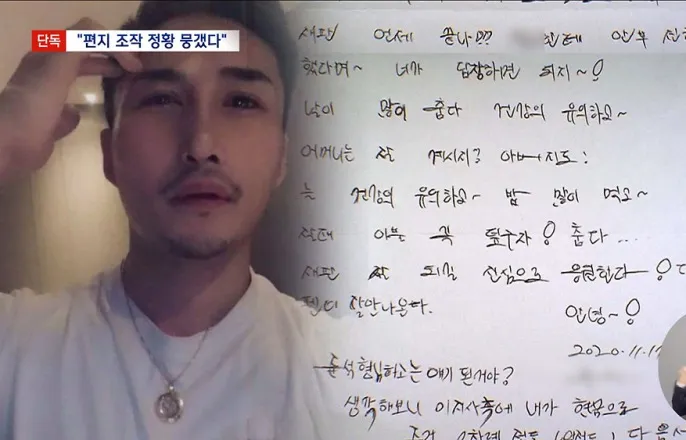 단독 "편지 조작 정황 뭉갰다"
재판 언제 끝나?? 안부 전
했다며~ 너가 답장하면 되지~!
날이 많이 춥다 건강의 유의하고~
어머니는 잘 계시지? 아버지도!
늘 건강의 유의하고~ 밥 많이 먹고~
꼭 춥다...
재판 잘 되길 진심으로 응원한다~!
펜이 잘안나온다. 안녕~!
2020.11.1
준석형님하고는 얘기 된거야?
생각해보니 이지사측에 내가 현금으로